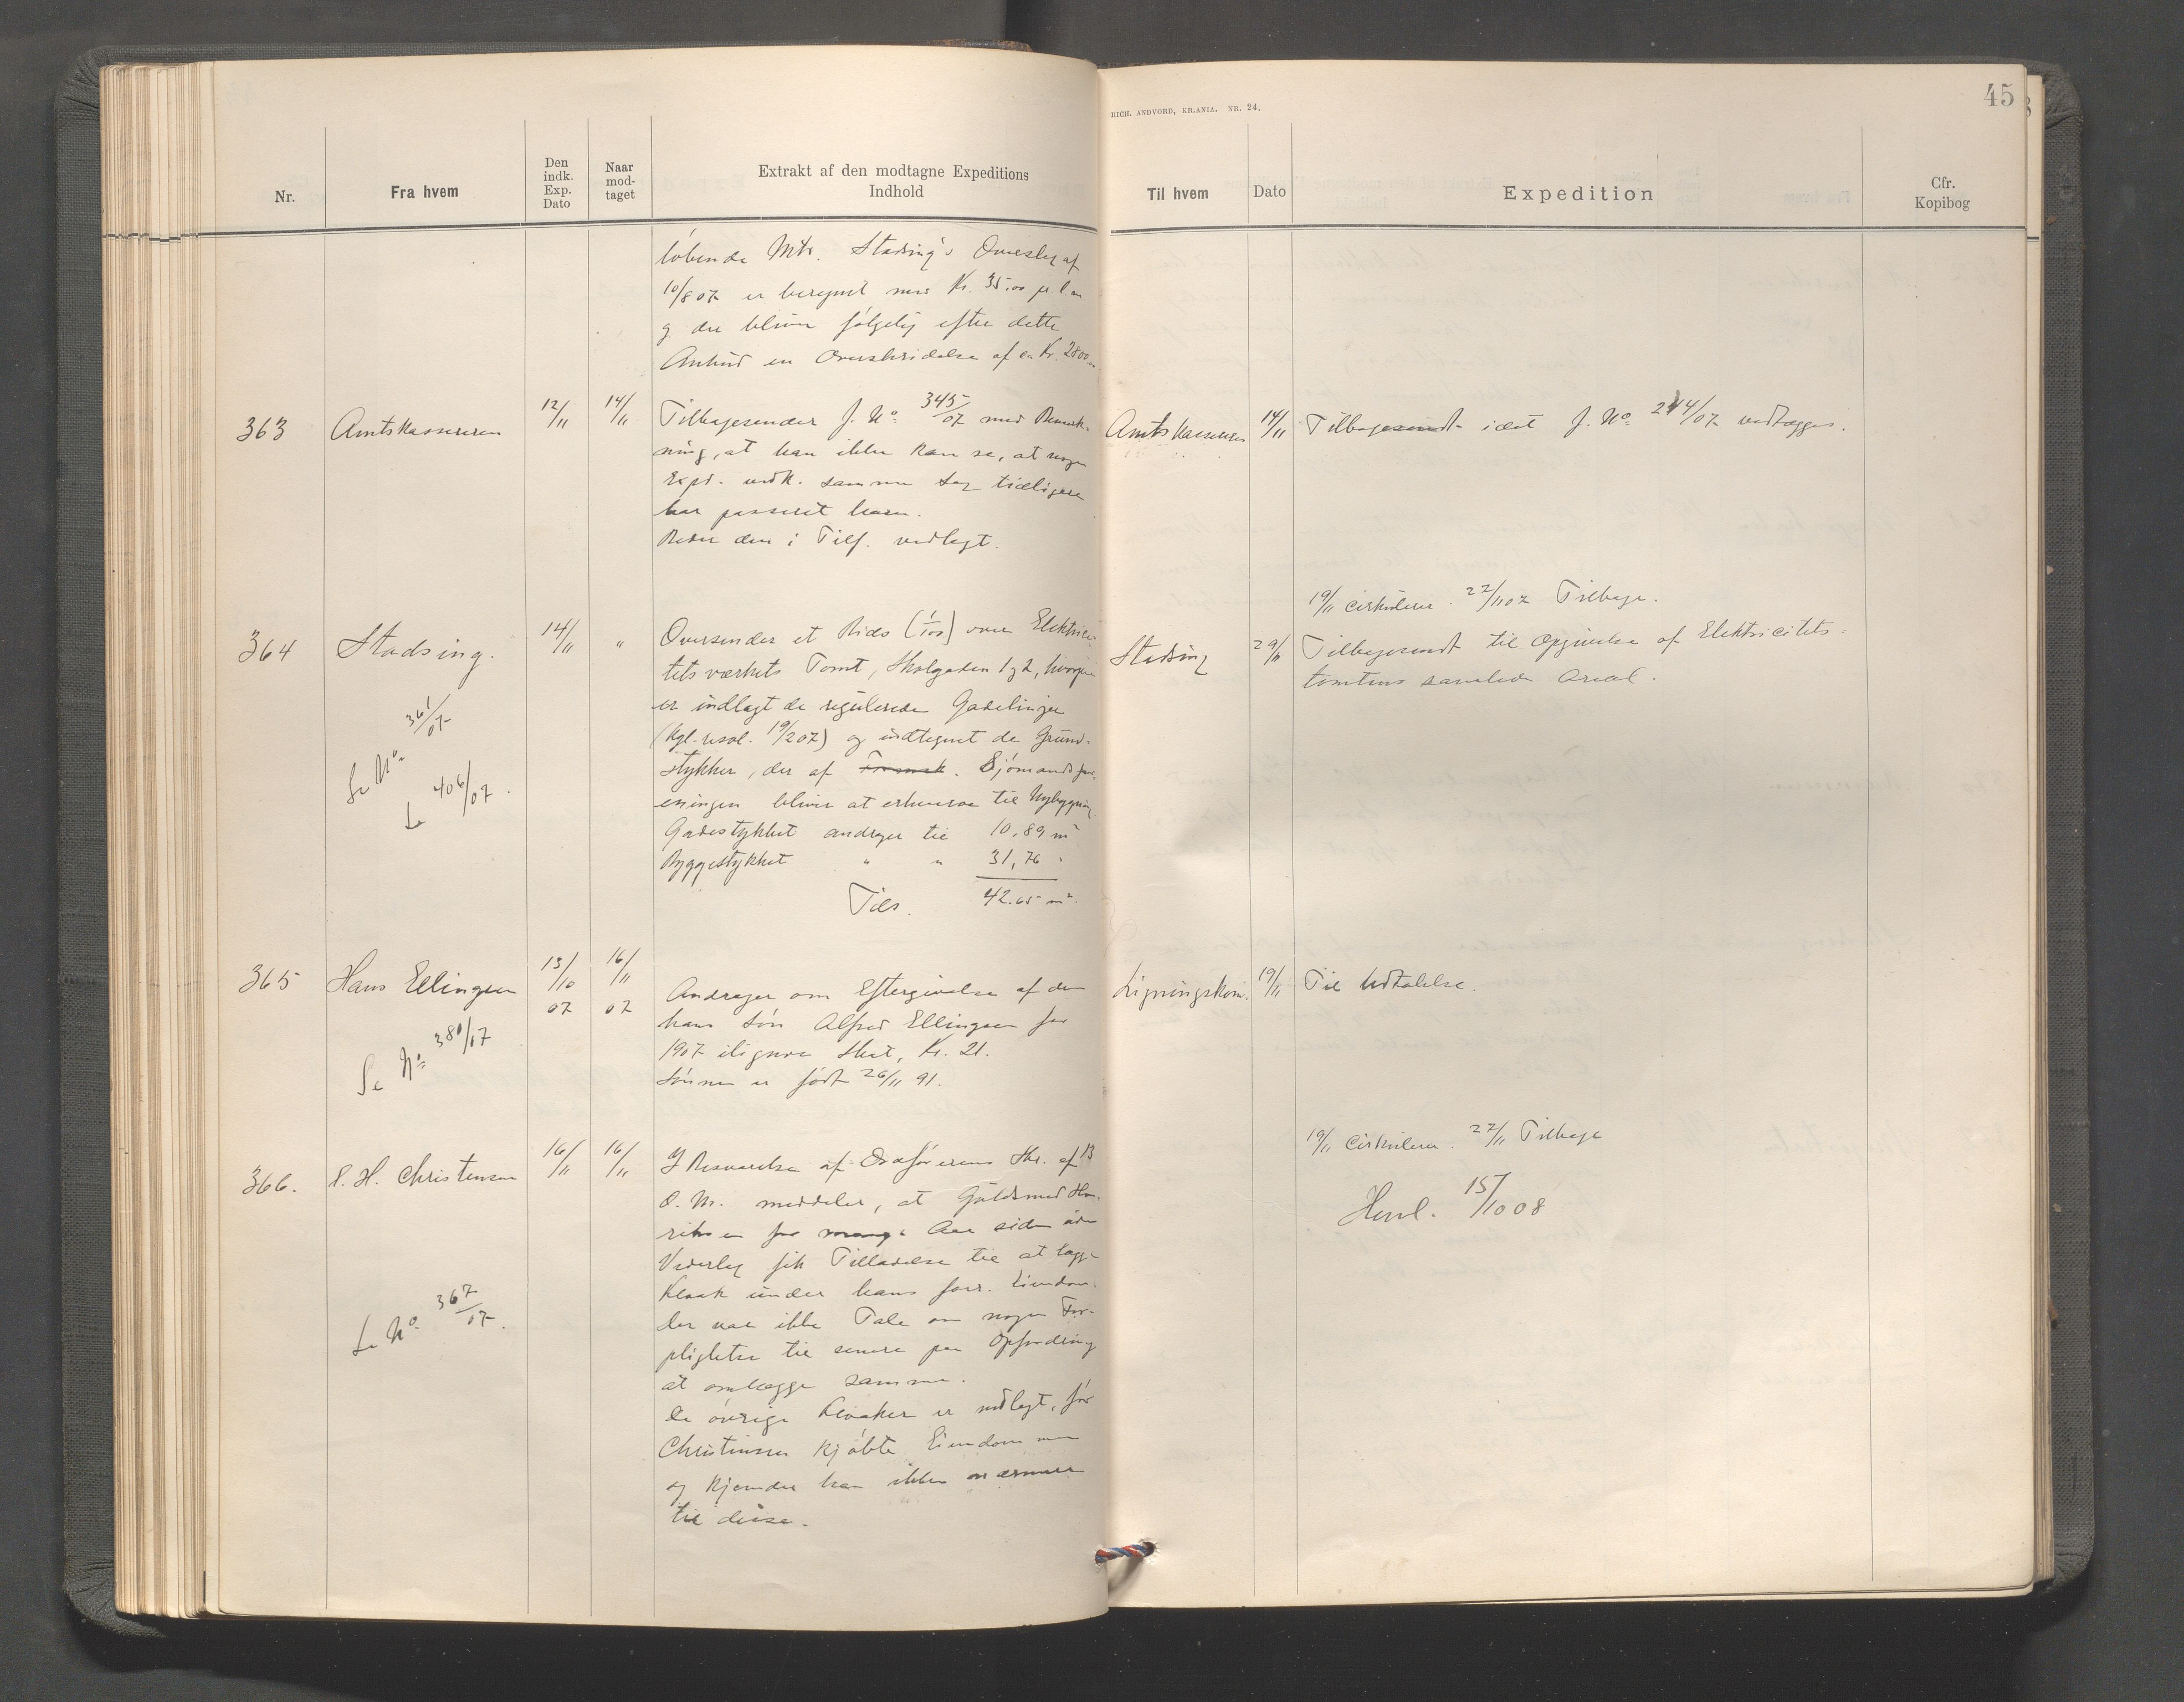 Nr.
Fra hvem
Den
indk.
Exp.
Dato
Naar
mod-
taget
Extrakt af den modtagne Expeditions
Indhold
løbende Mtr. Stadsing's Overslag af
10/8 07 er beregnet med Kr. 35.00 pr. l.m
og der bliver følgelig efter dette
Anbud en Overskridelse af ca. Kr. 2800
363
Amtskassereren
12/11
14/11
Tilbagesender J. No. 345/07 med Bemærk-
ning, at han ikke kan se, at nogen
Expd. vedk. samme Sag tidligere
har passeret ham.
Beder den i Tilf. vedlagt.
364
Stadsing.
14/11
"
Oversender et Rids (1/100) over Elektrici-
tetsværkets Tomt, Skolgaden 1 og 2, hvorpaa
er indlagt de regulerede Gadelinjer
(Kgl. resol. 19/2 07) og indtegnet de Grund-
stykker, der af Sjømandsfor-
eningen bliver at erhverve til Nybygning.
Gadestykket andrager til 10,89 m²
Byggestykket " " 31,76 "
Tils. 42.65 m²
361/07
Se No.
Se 406/07.
365
Hans Ellingsen
13/10
07
16/11
07
Andrager om Eftergivelse af den
hans Søn Alfred Ellingsen for
1907 ilignede Skat, Kr. 21.
Sønnen er født 26/11 91.
Se No. 380/07
366.
P. H. Christensen
16/11
16/11
I Besvarelse af Ordførerens Skr. af 13
d. M. meddeles, at Guldsmed Hen-
riksen for mange Aar siden uden
Vederlag fik Tilladelse til at lægge
Kloak under hans forr. Eiendom.
Der var ikke Tale om nogen For-
pligtelse til senere paa Opfordring
at omlægge samme.
De øvrige Kloaker er nedlagt, før
Christensen kjøbte Eiendommen
og kjender han ikke nærmere
til disse.
Se No. 367/07.
RICH. ANDVORD, KR.ANIA. NR. 24.
45
Til hvem
Dato
Expedition
Cfr.
Kopibog
Amtskassereren
14/11
Tilbagesendt idet J. No. 244/07 vedlægges.
19/11 cirkulerer. 27/11 07 Tilbage.
Stadsing
29/11
Tilbagesendt til Opgivelse af Elektricitets-
tomtens samlede Areal.
Ligningskom.
19/11
Til Udtalelse.
19/11 Cirkulerer. 27/11 Tilbage
Henl. 15/10 08